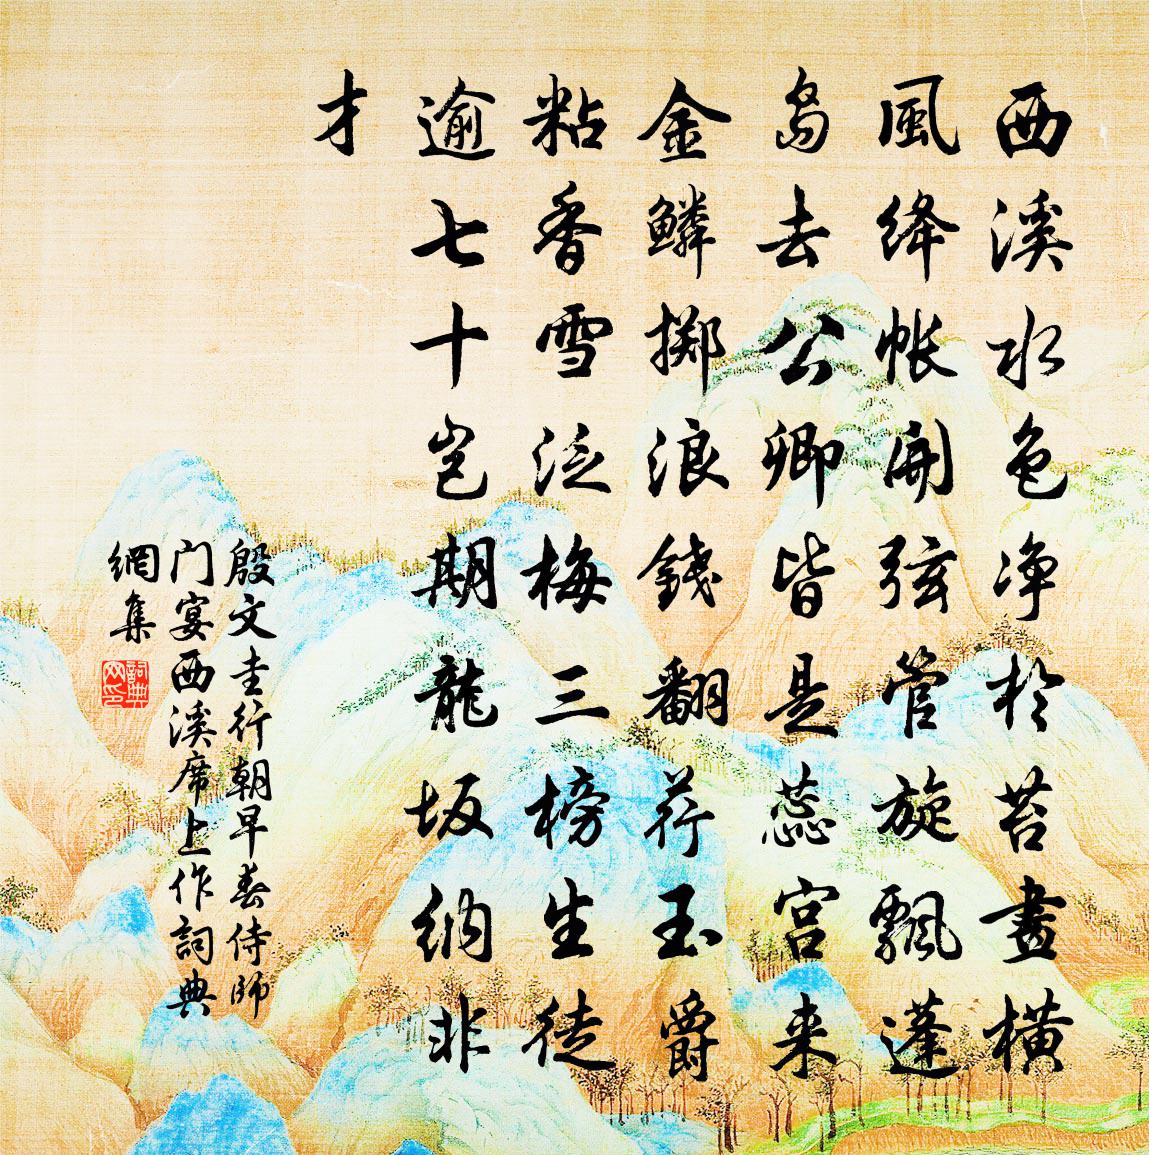 西溪水色净於苔畫橫
風绛帐開弦管旋飄蓬
島去公卿皆是蕊宫来
金鱗掷浪錢翻荇玉爵
粘香雪泛梅三榜生徒
逾七十岂期龍坂纳非
才
殷文圭行朝早春侍師
门宴西溪席上作詞典
網集